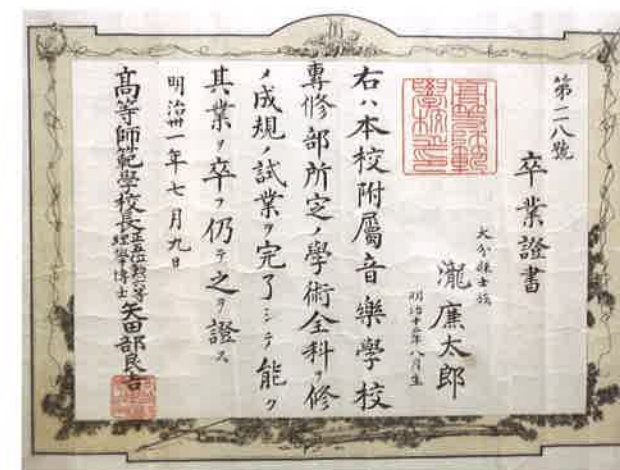 第二八號
卒業證書
大分縣士族
瀧廉太郎
明治十二年八月生
高等師範
學校之印
右ハ本校附屬音樂學校
專修部所定ノ學術全科ヲ修
メ成規ノ試業ヲ完了シテ能ク
其業ヲ卒フ仍テ之ヲ證ス
明治卅一年七月九日
高等師範學校長正五位勲六等理學博士矢田部良吉